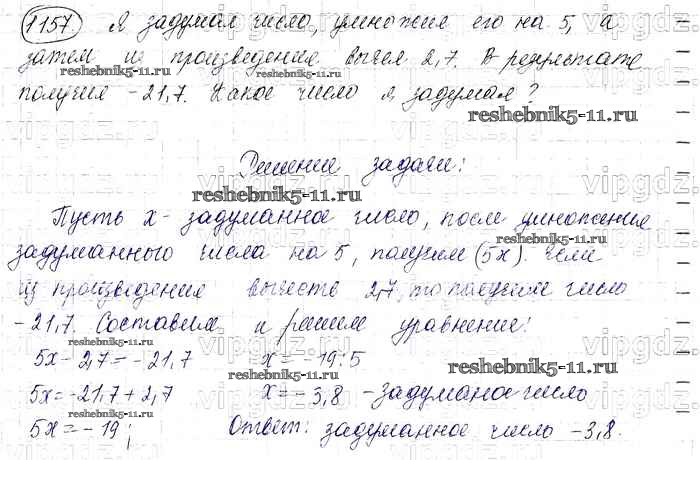 1157 Я задумал число, умножил его на 5, а
затем из произведения вычел 2,7. В результате
reshebnik5-11.ru
получил -21,7. Какое число я задумал?
reshebnik5-11.ru
Решение задачи:
reshebnik5-11.ru
Пусть x- задуманное число, после умножения
задуманного числа на 5, получим (5x). Если
из произведения вычесть 2,7, то получим число
-21,7. Составим и решим уравнение:
reshebnik5-11.ru
5x-2,7=-21,7 x=-19:5
reshebnik5-11.ru
reshebnik5-11.ru
5x=-21,7+2,7 x=-3,8 -задумано число
reshebnik5-11.ru
5x=-19; Ответ: задуманное число -3,8.
vipgdz.ru